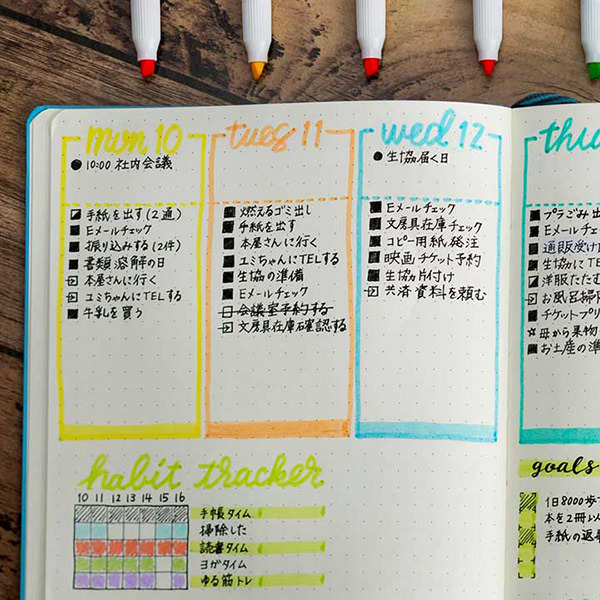 mon 10
10:00 社内会議
手紙を出す(2通)
Eメールチェック
振り込みする(2件)
書類溶解の日
本屋さんに行く
ユミちゃんにTELする
牛乳を買う
tues 11
燃えるゴミ出し
手紙を出す
本屋さんに行く
ユミちゃんにTELする
生協の準備
Eメールチェック
会議室予約する
文房具在庫確認する
wed 12
生協届く日
Eメールチェック
文房具在庫チェック
コピー用紙発注
映画チケット予約
生協片付け
共済資料を頼む
thu
プラごみ出
Eメールチェ
通販受け
生協にTE
洋服たたむ
お風呂掃
チケットプリ
母から果物
お土産の準
habit tracker
10 11 12 13 14 15 16
手帳タイム
掃除した
読書タイム
ヨガタイム
ゆる筋トレ
goals
1日8000歩
本を2冊
手紙の返